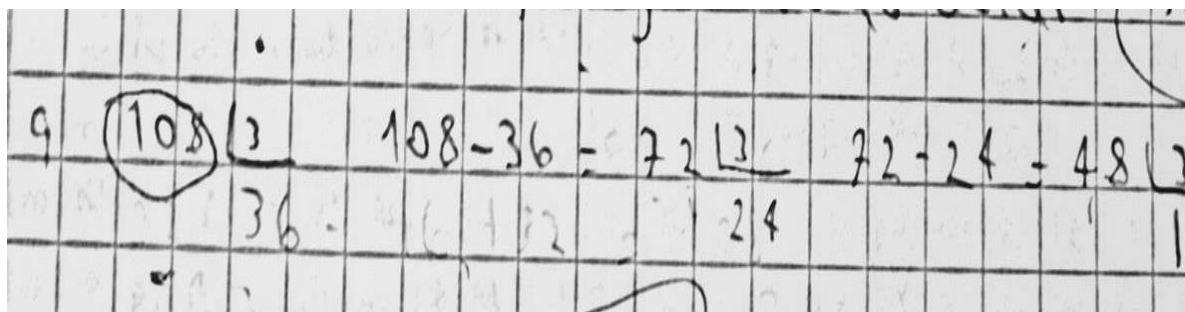 9 108 3 108-36=72 3 72-24=48
36 24